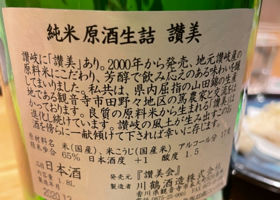 純米 原酒生詰 讃美
讃岐に「讃美」あり。2000年から発売、地元讃岐産の
原料米にこだわり、芳醇で飲み応えのある味わいを醸
してまいりました。私共は、県内屈指の山田錦の生産
地である観音寺市田野々地区の篤農家と交流を
かっております。良質の原料米から生まれる「讃美」は
進化し続けています。讃岐の風土が生み出すこの
酒を傍らに一献傾けて下されば幸いに存じます。
原材料名 米(国産)、米こうじ(国産米) アルコール分 17度
精米歩合 65% 日本酒度 +1 酸度 1.5
日本酒
発売元 『讃美会』
製造者 川鶴酒造株式会
香川県観音寺
2020.12